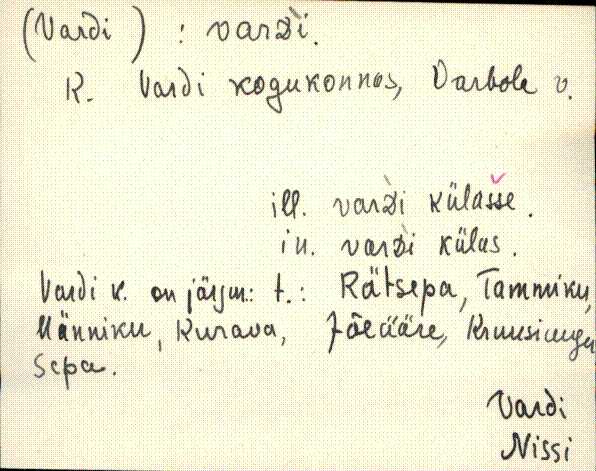 (Vardi) : var̀di.
K. Vardi kogukonnas, Varbola v.
ill. var̀di külašse.
in. var̀di külas.
Vardi k. on järgm.: t.: Rätsepa, Tammiku,
Männiku, Kurava, Jõeääre,
Sepa.
Vardi
Nissi